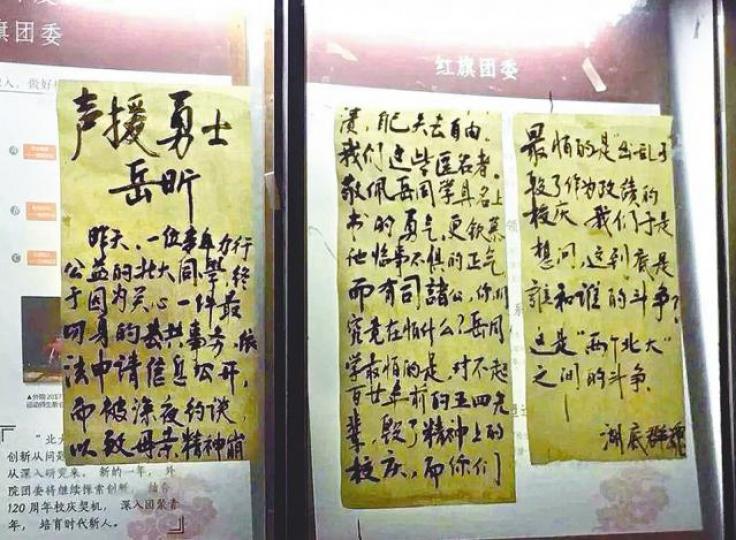 旗团委
声援勇士
岳昕
昨天,一位事年力行
公益的北大同學,终
于因为关心一件最
切身的公共事务,依
法申请信息公开,
而被深夜约谈,
以致母亲精神崩
"北大
创新从问题
从深入研究来。新的一年,外
院团委将继续探索创新,
120周年校庆契机,深入团聚青
年,培育时代新人。
红旗团委
溃,自己失去自由.
我们这些匿名者,
敬佩岳同学具名上
书的勇气,更钦慕
他临事不惧的正气
而有司諸公,你们
究竟在怕什么?岳同
学最怕的是,对不起
百廿年前的五四先
辈,毁了精神上的
校庆,而你们
最怕的是"出乱子"
毁了作为政绩的
校庆.我们于是
想问,这到底是
誰和谁的斗争?
这是"两个北大"
之间的斗争.
湖底群魂